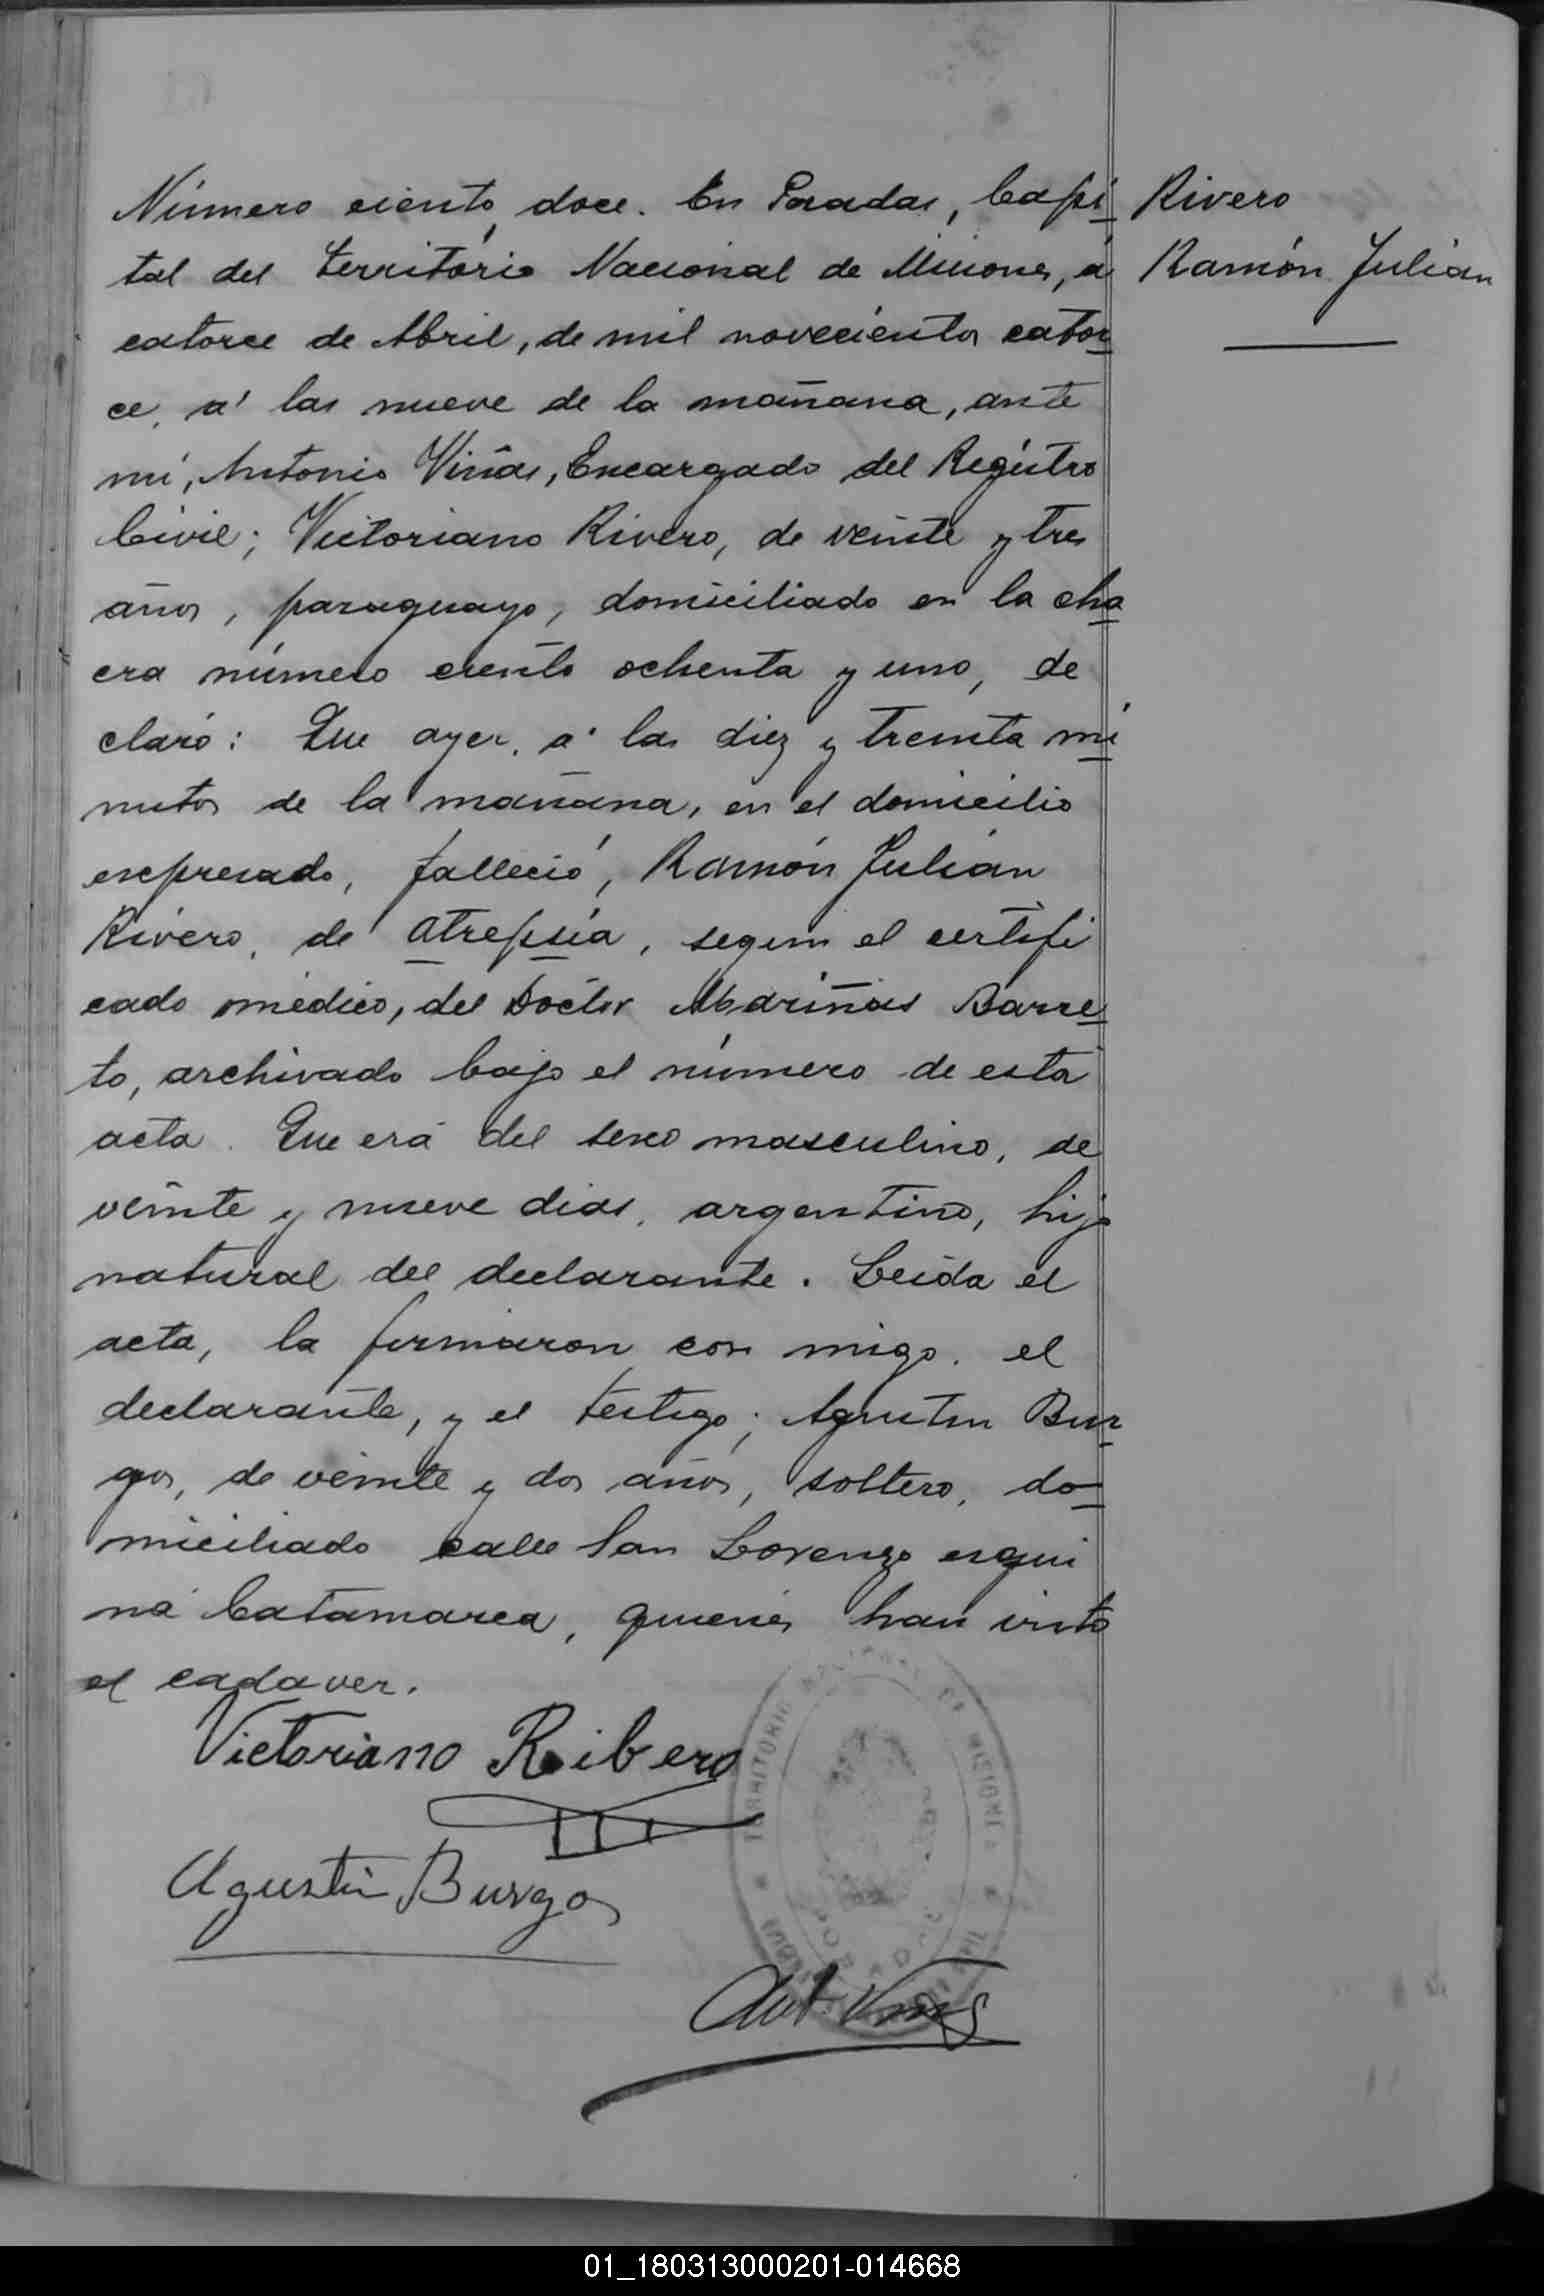 Número ciento doce. En Posadas, Capi-
tal del territorio Nacional de Misiones, á
catorce de Abril, de mil novecientos cator-
ce, a' las nueve de la mañana, ante
mi, Antonio Viñas, Encargado del Registro
Civil; Victoriano Rivero, de veinte y tres
años, paraguayo, domiciliado en la cha-
cra número ciento ochenta y uno, de
claró: Que ayer, a' las diez y treinta mi-
nutos de la mañana, en el domicilio
espresado, falleció, Ramón Julián
Rivero, de atrepsia, segun el certifi
cado médico, del Doctor Mariñas Barre-
to, archivado bajo el número de esta
acta. Que era del sexo masculino, de
veinte y nueve dias, argentino, hijo
natural del declarante. Leida el
acta, la firmaron con migo, el
declarante, y el testigo; Agustin Bur-
gos, de veinte y dos años, soltero, do-
miciliado calle San Lorenzo esqui
na Catamarca, quienes han visto
el cadaver.
Victoriano Ribero
Agustin Burgos
Ant. Viñas
Rivero
Ramón Julián
TERRITORIO NACIONAL DE MISIONES
01_180313000201-014668